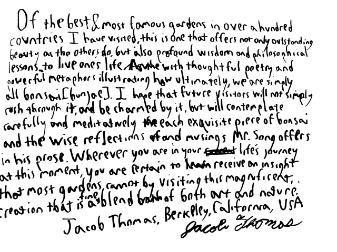 Of the best & most famous gardens in over a hundred
countries I have visited, this is one that offers not only outstanding
beauty as the others do, but also profound wisdom and philosophical
lessons to live ones life. With thoughtful poetry and
powerful metaphors illustrating how ultimately, we are simply
all bonsai [bunjae]. I hope that future visitors will not simply
rush through it, and be charmed by it, but will contemplate
carefully and meditatively the each exquisite piece of bonsai
and the wise reflections and musings Mr. Song offers
in his prose. Wherever you are in your life's journey
at this moment, you are certain to receive an insight
that most gardens cannot by visiting this magnificent
creation that is a fine blend of both art and nature.
Jacob Thomas, Berkeley, California, USA
Jacob Thomas